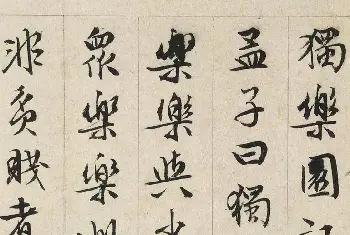 獨樂園記
孟子曰獨
樂樂與
衆樂樂
非貧賤者